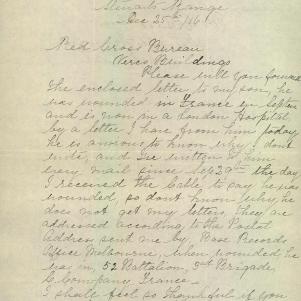 Stuarts Range
Dec 25th /16
Red Cross Bureau
Vercos Buildings
Please will you forward
the enclosed letter to my son, he
was wounded in France in Septem
and is now in a London Hospital
by a letter I have from him today
he is anxious to know why I dont
write, and I've written to him
every mail since Sep 29th the day
I received the Cable to say he was
wounded, so dont know why he
does not get my letters, they are
addressed according to the Postal
Address sent me by Base Records
Office Melbourne, when wounded he
was in, 52 Battalion, Brigade,
Company France.
I shall feel so thankful if you